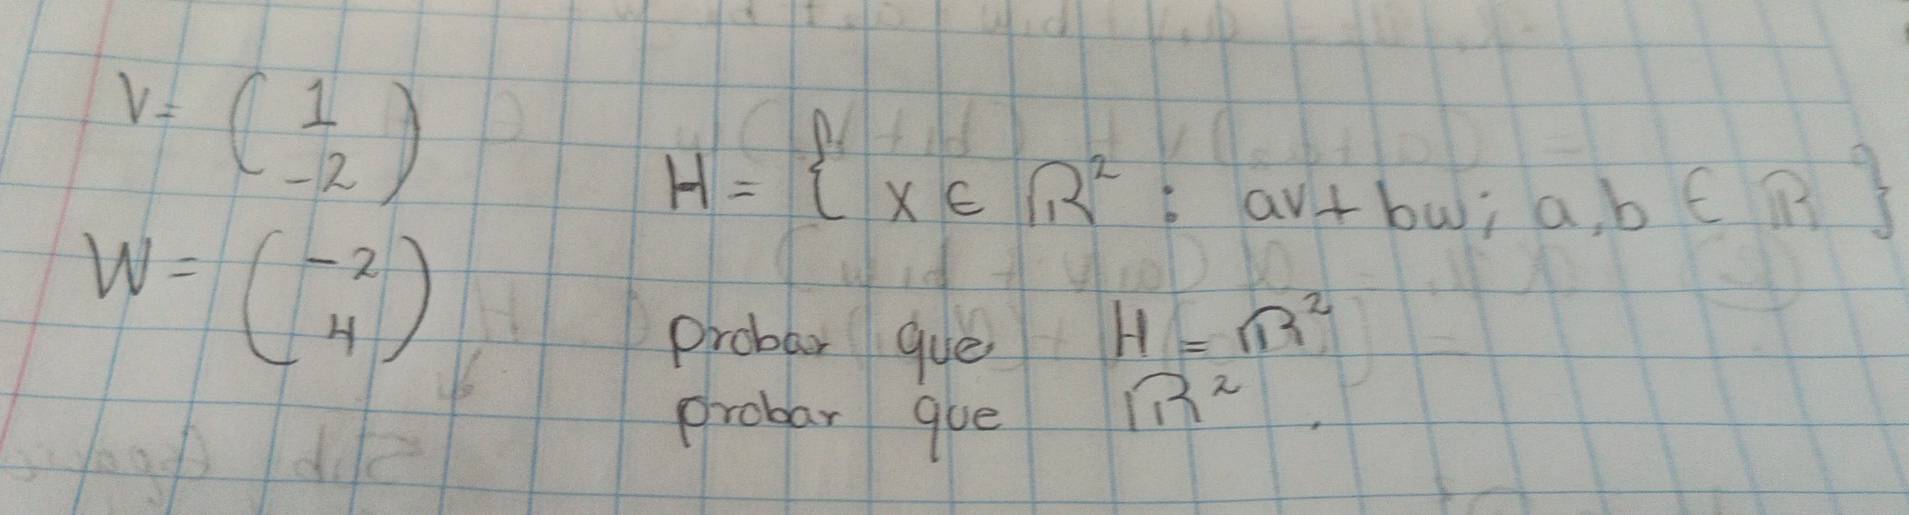 V = ( 1
-2 )
W = ( -2
4 )
H = { x ∈ ℝ² : av + bw; a, b ∈ ℝ }
probar que H = ℝ²
probar que ℝ² .